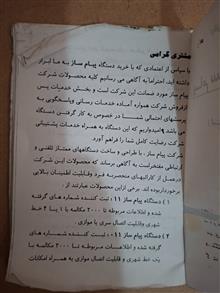 مشتری گرامی
با سپاس از اعتمادی که با خرید دستگاه پیام ساز به ما ابراز
داشته اید، احتراما به آگاهی می رسانیم کلیه محصولات شرکت
پیام ساز مورد ضمانت این شرکت است و بخش خدمات پس
از فروش شرکت همواره آماده خدمات رسانی و پاسخگویی به
پرسشهای احتمالی شما در خصوص به کار گرفتن دستگاه
می باشد. امیدواریم که این دستگاه به همراه خدمات پشتیبانی
شرکت رضایت کامل شما را فراهم آورد.
شرکت پیام ساز، با طراحی و ساخت دستگاههای ممتاز تلفنی و
ارتباطی مفتخر است به آگاهی برساند که این محصولات شرکت
در عمل از کارائیهای منحصر به فرد و قابلیت اطمینان بالایی
برخوردار بوده اند. برخی از این محصولات عبارتند از:
۱) دستگاه پیام ساز ۱۱۰: ثبت کننده شماره های گرفته
شده و اطلاعات مربوطه تا ۲۰۰۰ مکالمه با ۱ یا ۴ خط
شهری و قابلیت اتصال سری یا موازی.
۲) دستگاه پیام ساز ۱۱۱: ثبت کننده شماره های
گرفته شده و اطلاعات مربوطه تا ۲۰۰۰ مکالمه با
یک خط شهری و قابلیت اتصال موازی به همراه امکانات